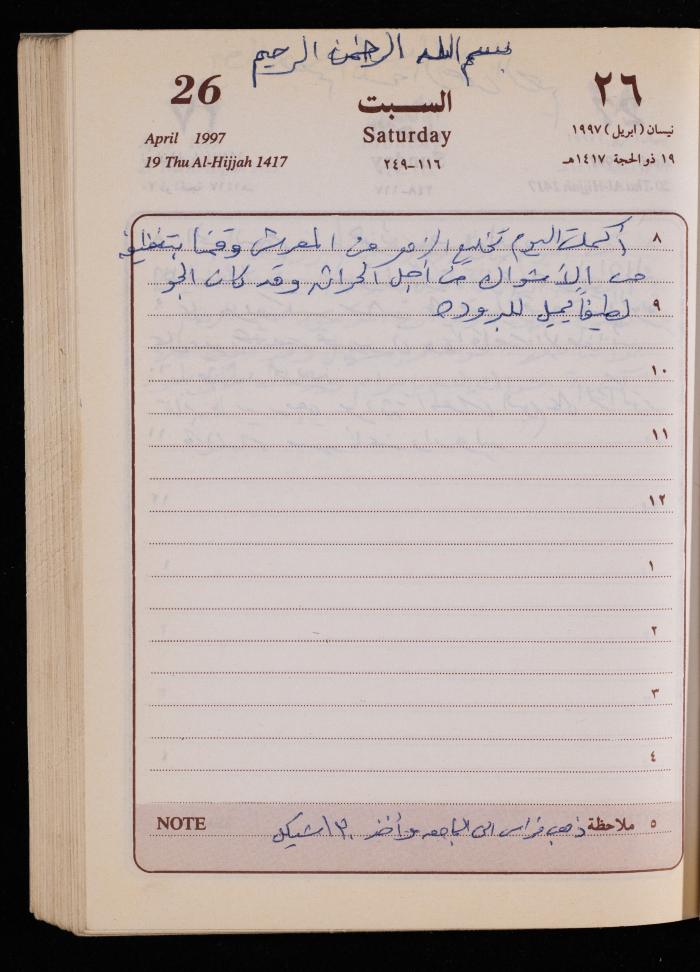 بسم الله الرحمن الرحيم
26 السبت ٢٦
April 1997 Saturday نيسان (ابريل) ١٩٩٧
19 Thu Al-Hijjah 1417 ١١٦-٢٤٩ ١٩ ذو الحجة ١٤١٧هـ
٨ أكملت اليوم تخليع من المعرش وقمنا بتنظيفه
من الأشواك من أجل الحراثه وقد كان الجو
٩ لطيفاً يميل للبروده
١٠
١١
١٢
١
٢
٣
٤
٥ ملاحظة ذهب فراس الى الجامعه وأخذ شيكل NOTE